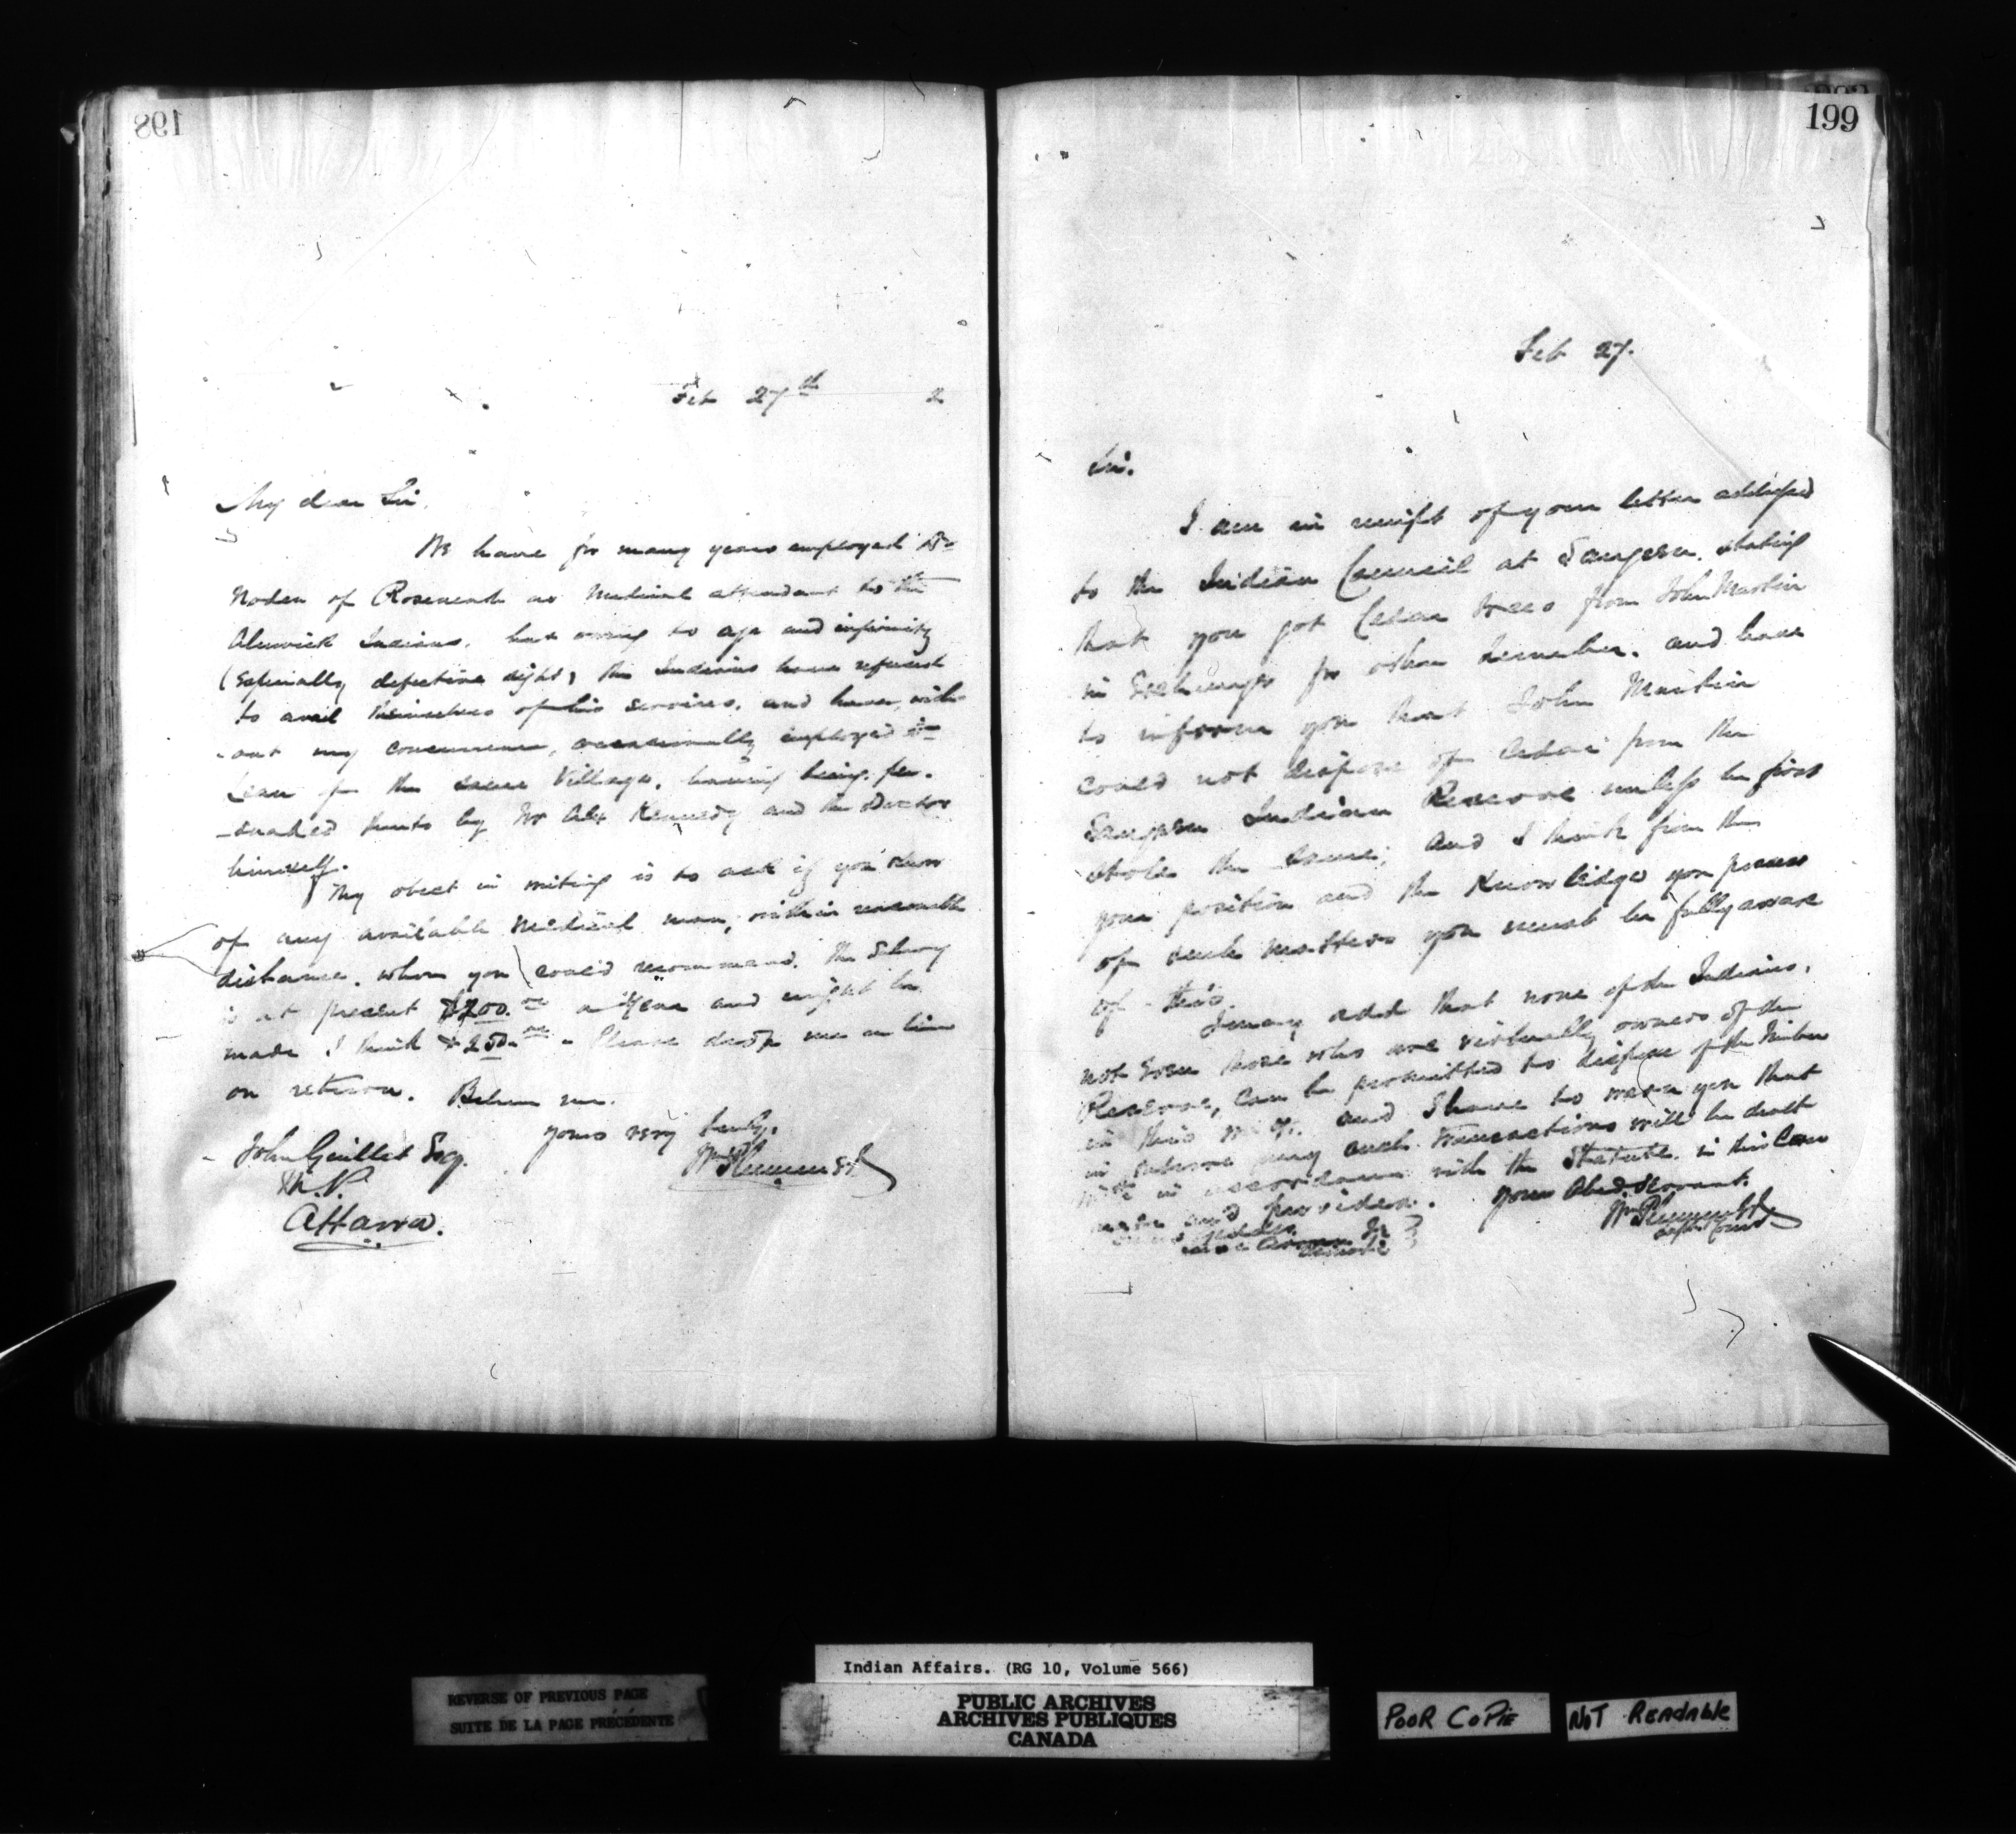 198
Feb 27th 2
My dear Sir,
We have for many years employed Dr
of Roseneath as Medical attendant to the
Alnwick Indians, but owing to age and infirmity
(Especially defective sight) the Indians have refused
to avail themselves of his services, and have, with-
-out my concurrence, occasionally employed Dr
of the same Village, having being per-
-suaded thereto by Mr Alex Kennedy and the Doctor
himself.
My obect in writing is to ask if you know
of any available Medical man, within reasonable
distance, whom you could recommend. The Salary
is at present $200.00 a Year and might be
made I think $250.00 - Please drop me a line
on return. Believe me.
Yours very truly,
Wm Plummer
John Guillet Esq.
M.P.
Ottawa.
199
Feb 27.
Sir.
I am in receipt of your letter addressed
to the Indian Council at Saugeen, stating
that you got Cedar trees from John Martin
in Exchange for other timber, and have
to inform you that John Martin
could not dispose of Cedar from the
Saugeen Indian Reserve unless he first
stole the same; and I think from
your position and the Knowledge you possess
of such matters you must be fully aware
of this.
I may add that none of the Indians,
not Even those who are virtually owners of the
Reserve, can be permitted to dispose of the timber
in this way. and I have to warn you that
in future any such transactions will be dealt
with in accordance with the Statute in this Case
made and provided.
Your Obed. Servant.
Wm Plummer
REVERSE OF PREVIOUS PAGE
SUITE DE LA PAGE PRÉCÉDENTE
Indian Affairs. (RG 10, Volume 566)
PUBLIC ARCHIVES
ARCHIVES PUBLIQUES
CANADA
POOR COPIE
NOT READABLE